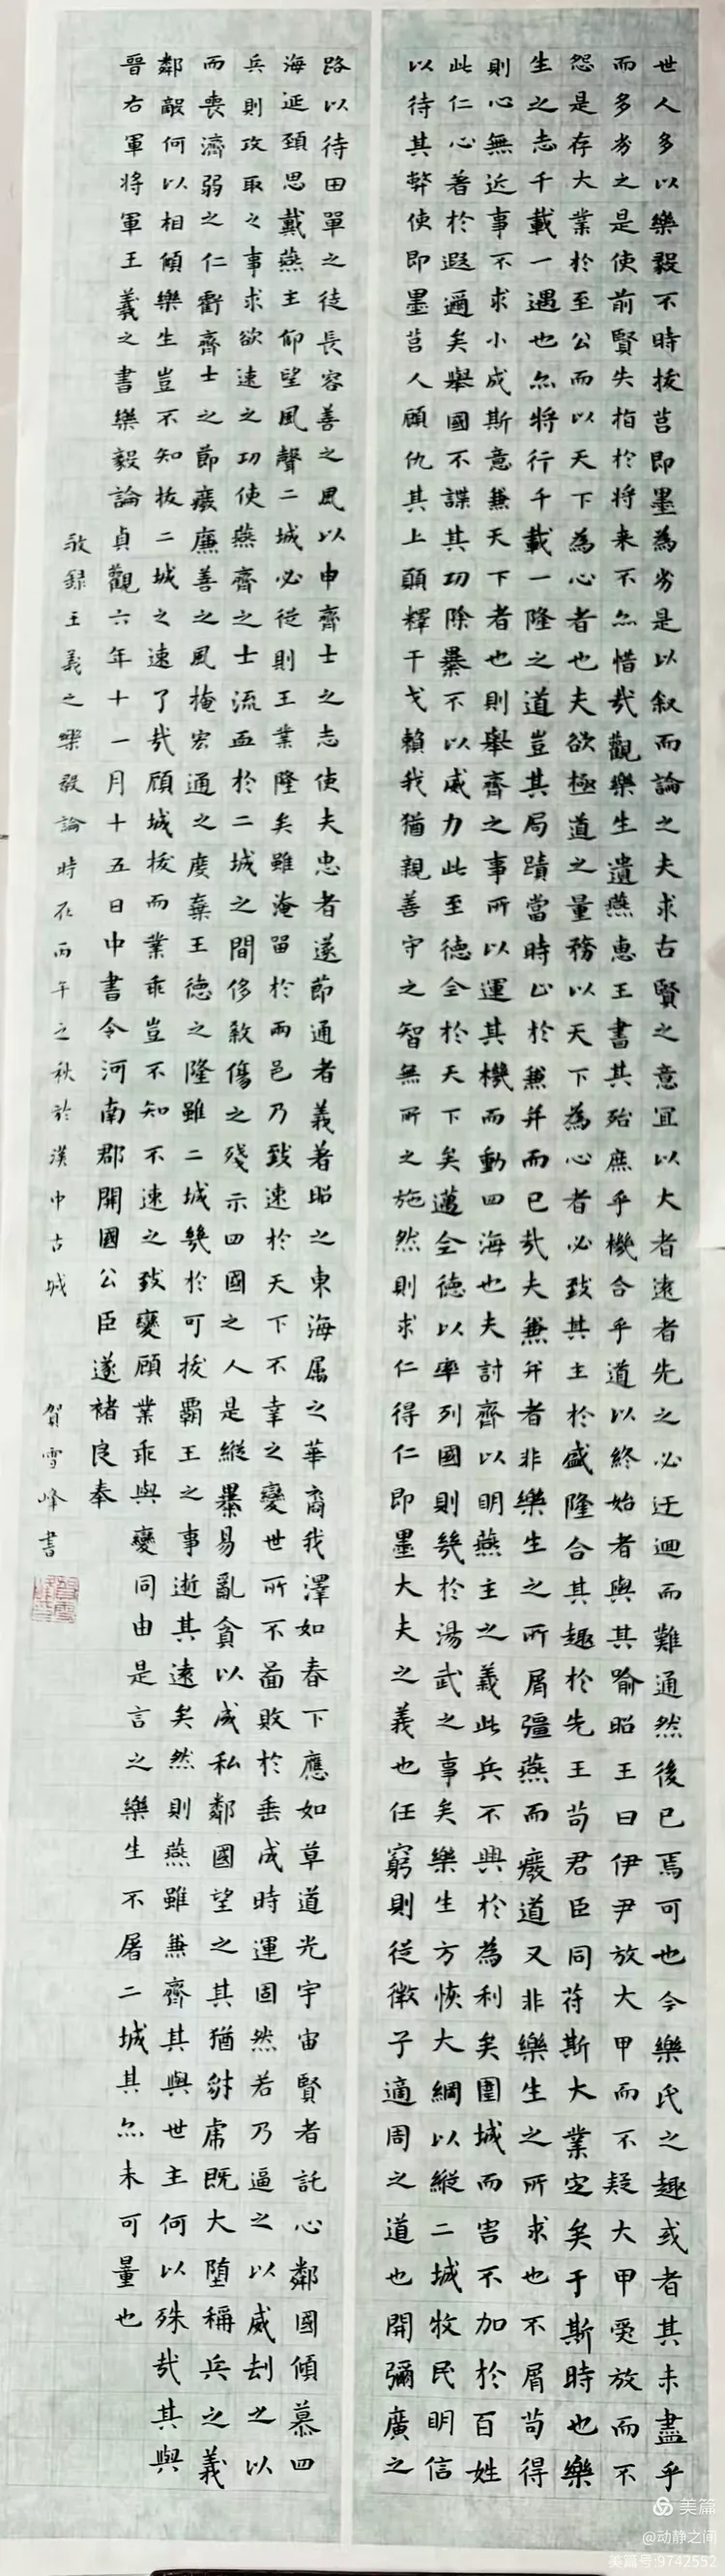 世人多以樂毅不時拔莒即墨為劣是以叙而論之夫求古賢之意宜以大者遠者先之必迂迴而難通然後已焉可也今樂氏之趣或者其未盡乎
而多劣之是使前賢失指於將来不亦惜哉觀樂生遺燕惠王書其殆庶乎機合乎道以終始者與其喻昭王曰伊尹放大甲而不疑大甲受放而不
怨是存大業於至公而以天下為心者也夫欲極道之量務以天下為心者必致其主於盛隆合其趣於先王苟君臣同苻斯大業定矣于斯時也樂
生之志千載一遇也亦將行千載一隆之道豈其局蹟當時止於兼并而已哉夫兼并者非樂生之所屑彊燕而廢道又非樂生之所求也不屑苟得
則心無近事不求小成斯意兼天下者也則舉齊之事所以運其機而動四海也夫討齊以明燕主之義此兵不興於為利矣圍城而害不加於百姓
此仁心著於遐邇矣舉國不謀其功除暴不以威力此至德全於天下矣邁全德以率列國則幾於湯武之事矣樂生方恢大綱以縱二城牧民明信
以待其弊使即墨莒人顧仇其上願釋干戈賴我猶親善守之智無所之施然則求仁得仁即墨大夫之義也任窮則從微子適周之道也開彌廣之
路以待田單之徒長容善之風以申齊士之志使夫忠者遂節通者義著昭之東海属之華裔我澤如春下應如草道光宇宙賢者託心鄰國傾慕四
海延頚思戴燕主仰望風聲二城必從則王業隆矣雖淹留於兩邑乃致速於天下不幸之變世所不啚敗於垂成時運固然若乃逼之以威刦之以
兵則攻取之事求欲速之功使燕齊之士流血於二城之間侈殺傷之殘示四國之人是縱暴易亂貪以成私鄰國望之其猶豺虎既大堕稱兵之義
而喪濟弱之仁虧齊士之節廢廉善之風掩宏通之度棄王德之隆雖二城幾於可拔霸王之事逝其遠矣然則燕雖兼齊其與世主何以殊哉其與
鄰敵何以相傾樂生豈不知拔二城之速了哉顧城拔而業乖豈不知不速之致變顧業乖與變同由是言之樂生不屠二城其亦未可量也
晉右軍將軍王羲之書樂毅論貞觀六年十一月十五日中書令河南郡開國公臣遂褚良奉
敬録王羲之樂毅論時在丙午之秋於漢中古城 賀雪峰書
美篇
@动静之间
美篇号:9742552